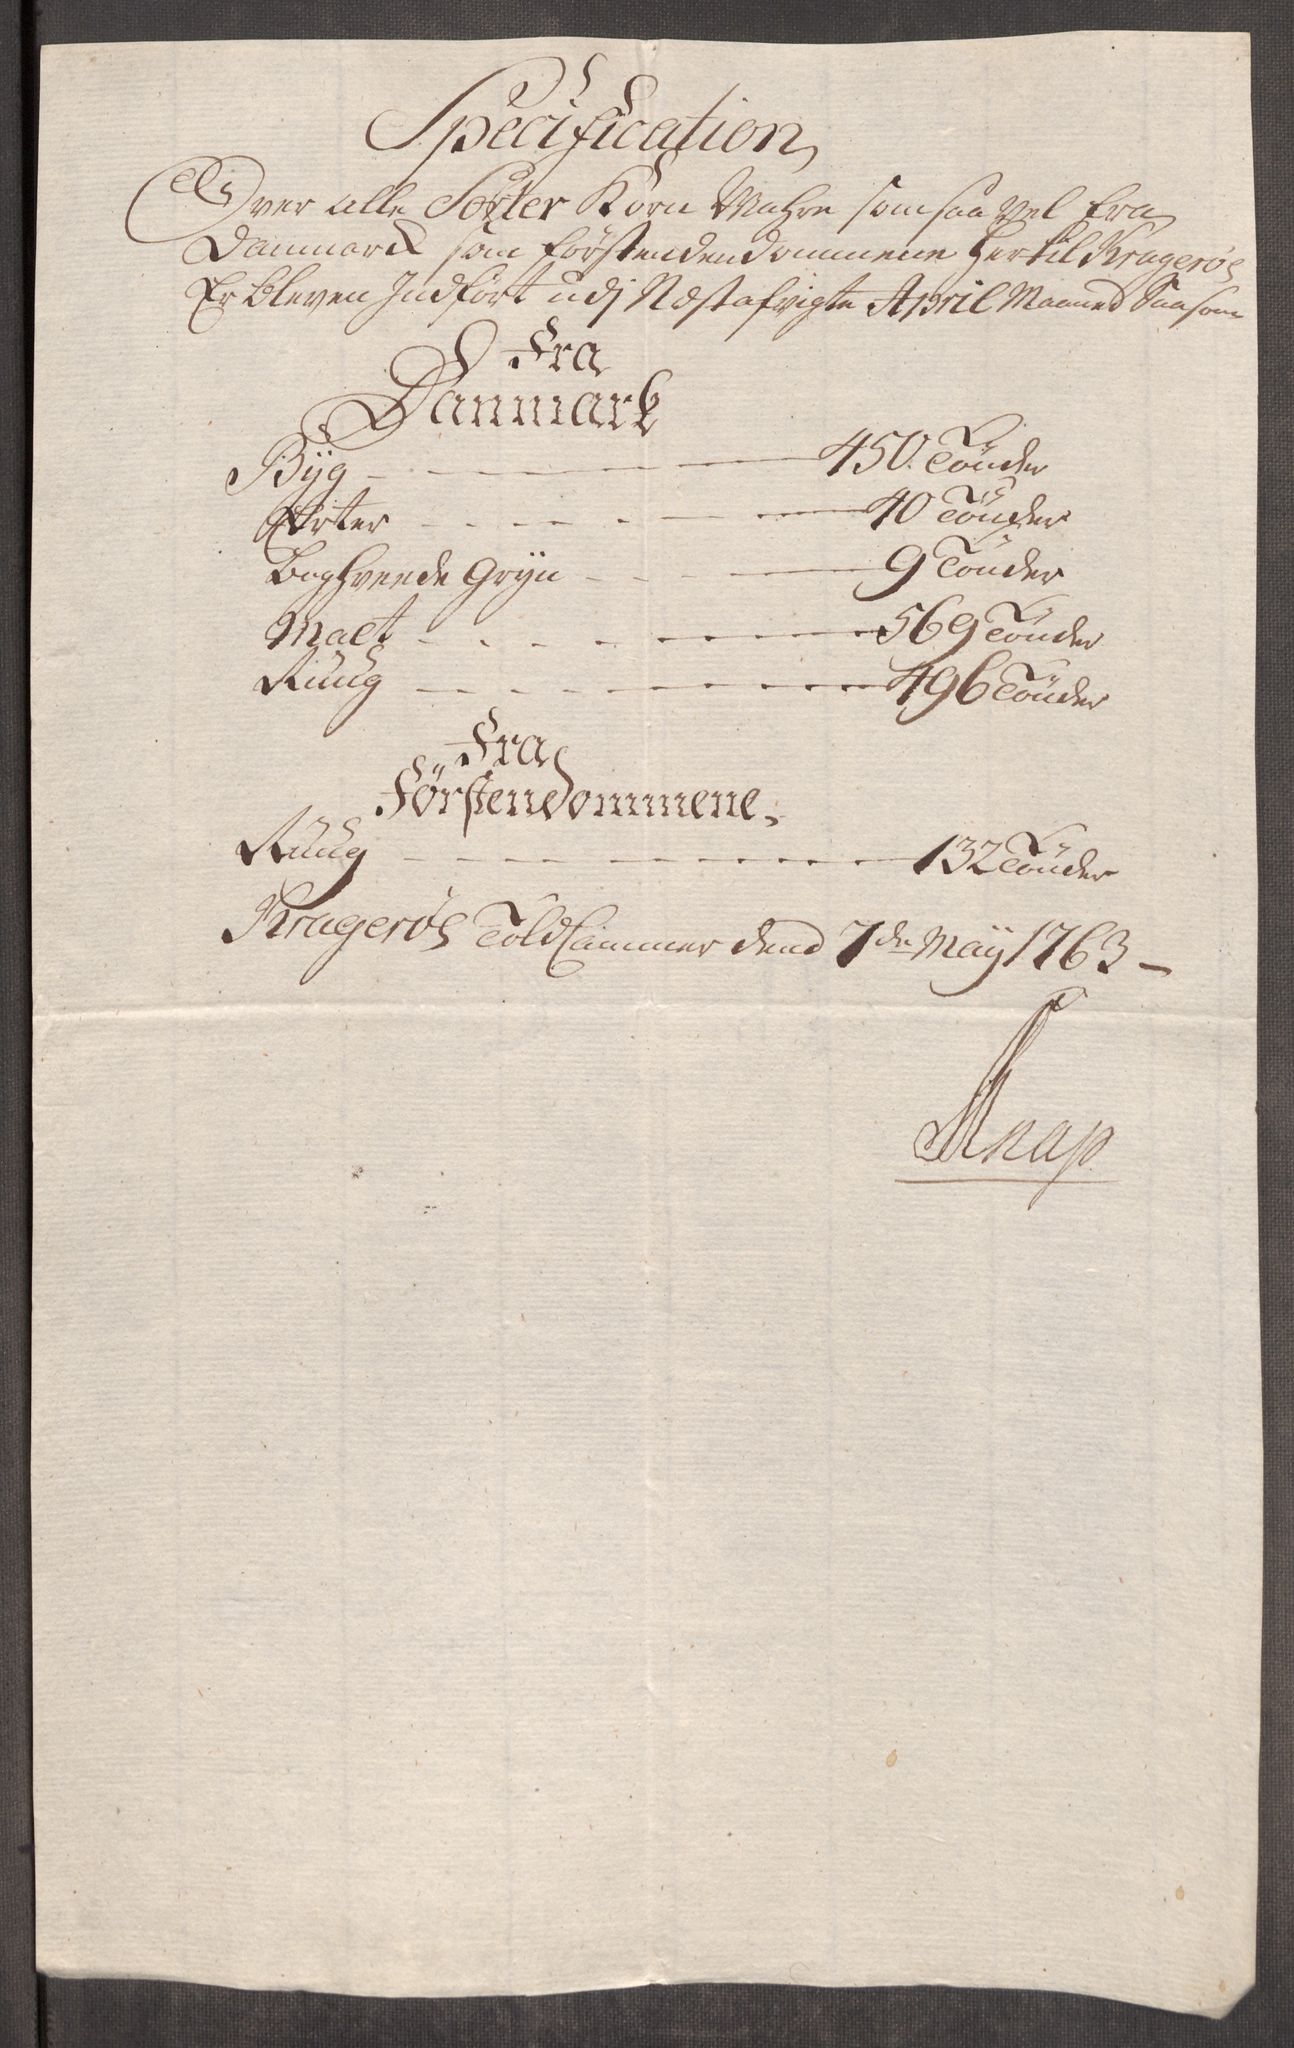 Specification
Over alle Sorter Korn Wahre som saa vel fra
Danmark som förstendendommene hertil Kragerøe
Er bleven Indført udj Næstafvigte April Maaned Saasom
Fra
Danmark
Byg 450 Tönder
Erter 40 Tönder
boghveede Gryn 9 Tönder
Malt 569 Tönder
Ruug 496 Tönder
Fra
Førstendommene
Ruug 132 Tönder
Kragerøe Told Cammer dend 7de May 1763
Knap